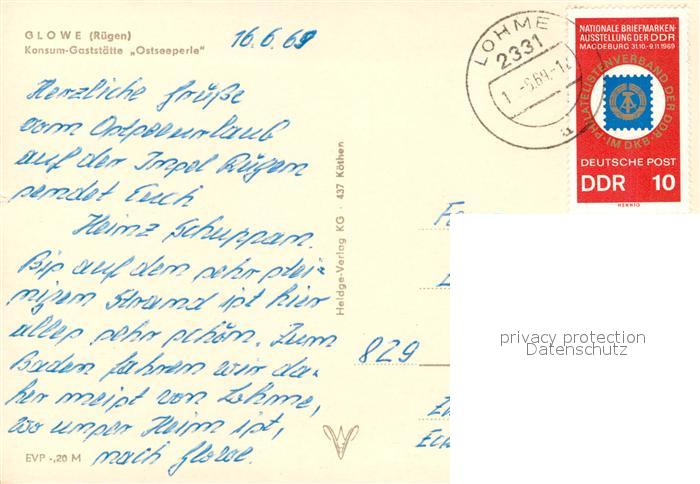 GLOWE (Rügen)
Konsum-Gaststätte „Ostseeperle"
16.6.69
Herzliche Grüße
vom Ostseeurlaub
auf der Insel Rügen
sendet Euch
Heinz Schuppan.
Bis auf den sehr stei-
nigen Strand ist hier
alles sehr schön. Zum
Baden fahren wir da-
her meist von Lohme,
wo unser Heim ist,
nach Glowe.
EVP -,20 M
Heldge-Verlag KG · 437 Köthen
LOHME
2331
a
NATIONALE BRIEFMARKEN-
AUSSTELLUNG DER DDR
MAGDEBURG 31.10.-9.11.1969
PHILATELISTENVERBAND DER DDR · IM DKB ·
DEUTSCHE POST
DDR 10
HENNIG
829
privacy protection
Datenschutz